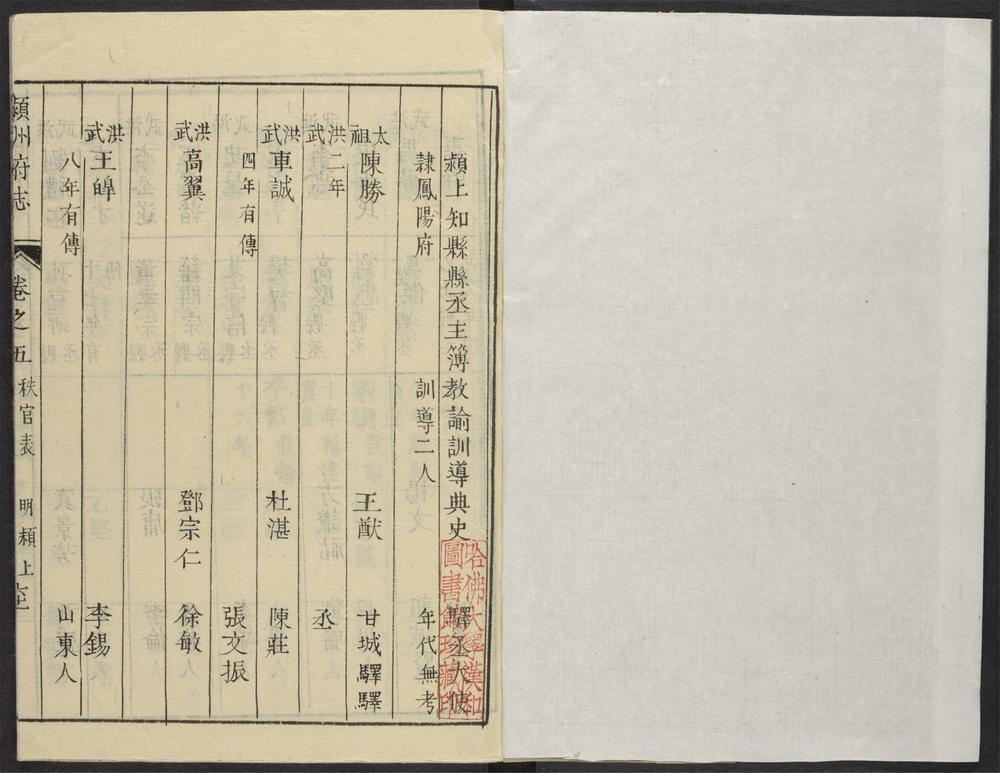 潁上知縣縣丞主簿教諭訓導典史驛丞大使
隸鳳陽府 訓導二人 年代無考
太祖陳勝 王猷 甘城驛驛
洪武二年 丞
洪武車誠 杜湛 陳莊
四年有傳 張文振
洪武高翼 鄧宗仁 徐敏
洪武王皞 李錫
八年有傳 山東人
潁州府志 卷之五 秩官表 明潁上
哈佛大學漢和
圖書館珍藏印